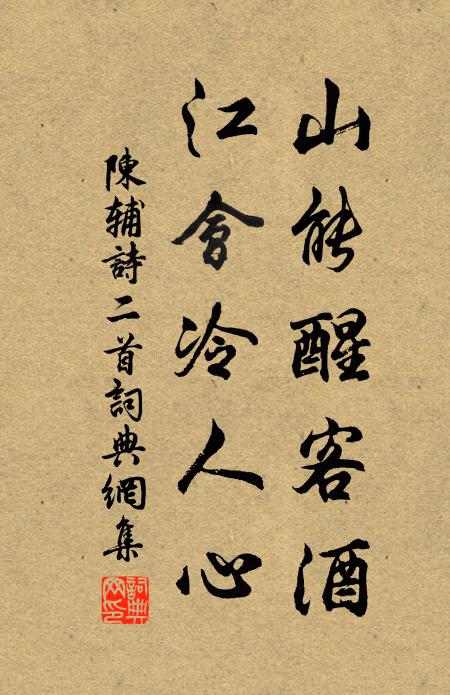 山能醒客酒
江會冷人心
陳辅詩二首詞典網集
詞典
网印